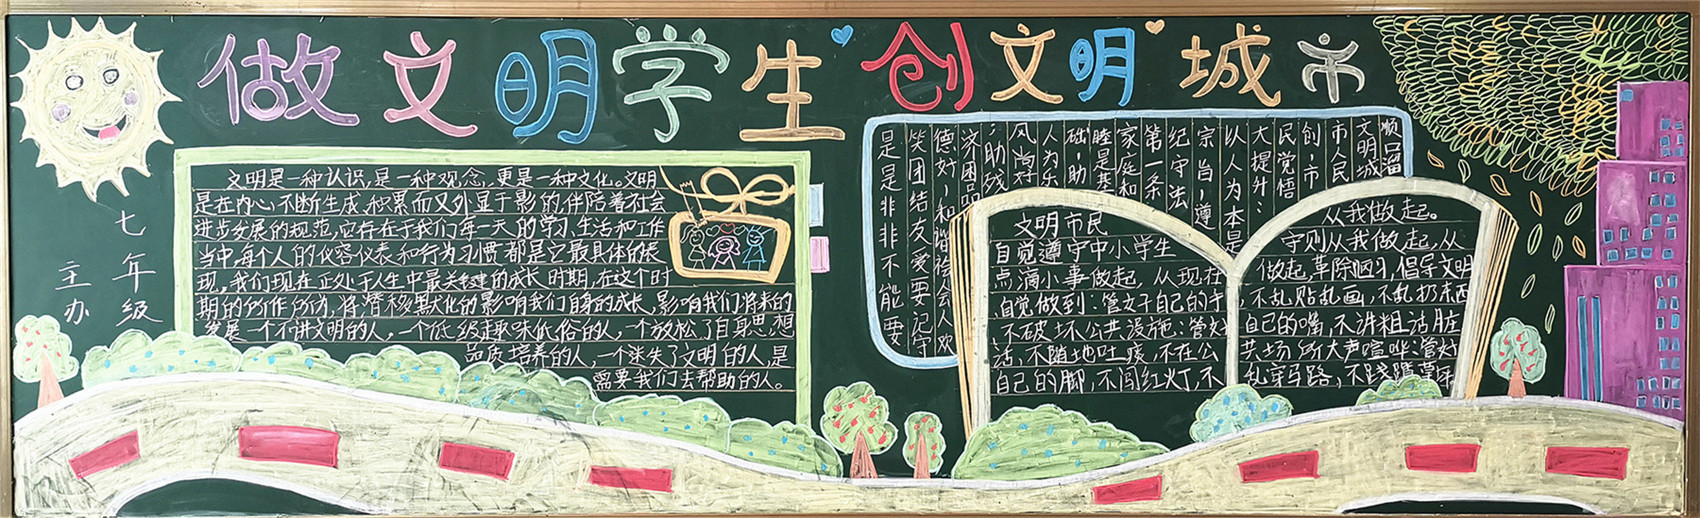 做文明学生创文明城市
七年级
主办
文明是一种认识,是一种观念,更是一种文化。文明
是在内心,不断生成、积累而又外显于影的,伴陪着社会
进步发展的规范,它存在于我们每一天的学习、生活和工作
当中,每个人的仪容仪表和行为习惯都是它最具体的表
现,我们现在正处于人生中最关键的成长时期,在这个时
期的所作所为,将潜移默化的影响我们自身的成长,影响我们将来的
发展一个不讲文明的人,一个低级趣味低俗的人,一个放松了自身思想
品质培养的人,一个迷失了文明的人,是
需要我们去帮助的人。
顺口溜
文明城
市人民
创市
民觉悟
大提升:
以人为本是
宗旨,遵
纪守法
第一条
家庭和
睦是基
础,助
人为乐
风尚好
,助残
济困品
德好,和谐社会人欢
笑团结友爱要记牢
是是非非不能要
文明市民
自觉遵守中小学生
点滴小事做起,从现在
自觉做到:管立于自己的手
不破坏公共设施:管好
洁,不随地吐痰,不在公
自己的脚,不闯红灯,不
从我做起。
守则从我做起,从
做起,革除陋习,倡导文明
,不乱贴乱画,不乱扔东西
自己的嘴,不讲粗话脏
共场所大声喧哗:管好
乱穿马路,不践踏草坪